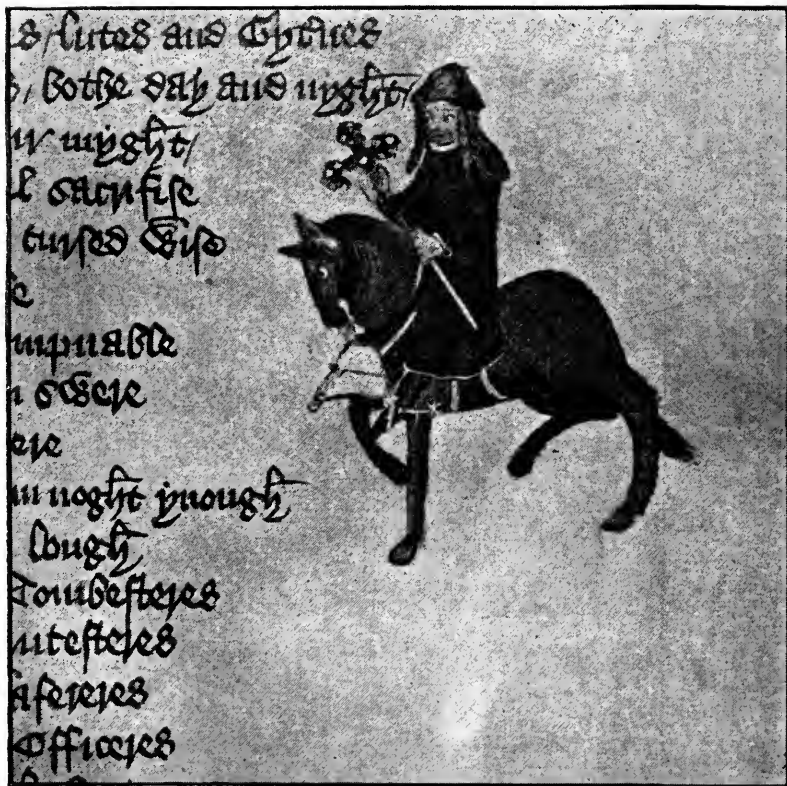 s / lutes and Gyternes
s / bothe day and nyght /
ir myght /
l sacrifise
cursed wise
e
mpnable
n swere
ere
m noght ynough
lough
Tombesteres
utesteres
afereres
Officeres